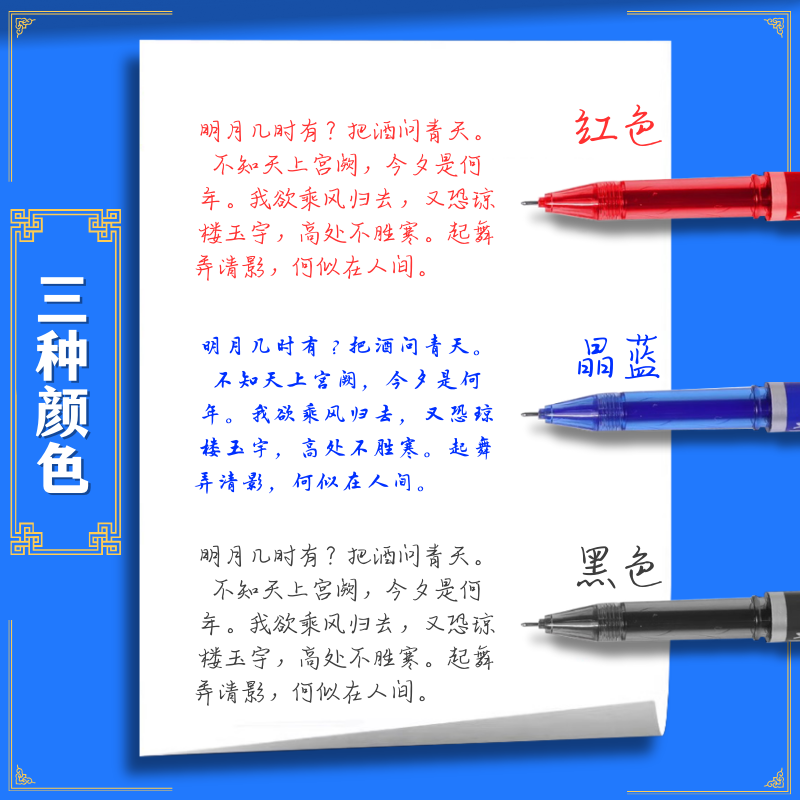 三种颜色
明月几时有？把酒问青天。
不知天上宫阙，今夕是何
年。我欲乘风归去，又恐琼
楼玉宇，高处不胜寒。起舞
弄清影，何似在人间。
红色
明月几时有？把酒问青天。
不知天上宫阙，今夕是何
年。我欲乘风归去，又恐琼
楼玉宇，高处不胜寒。起舞
弄清影，何似在人间。
晶蓝
明月几时有？把酒问青天。
不知天上宫阙，今夕是何
年。我欲乘风归去，又恐琼
楼玉宇，高处不胜寒。起舞
弄清影，何似在人间。
黑色